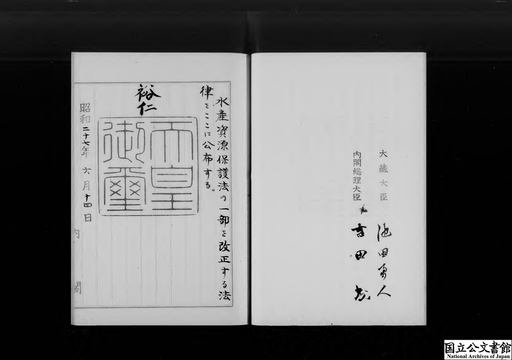 大蔵大臣 池田勇人
内閣総理大臣 吉田茂
水産資源保護法の一部を改正する法
律をここに公布する。
裕仁
天皇
御璽
昭和二十七年六月十四日
内閣
国立公文書館
National Archives of Japan